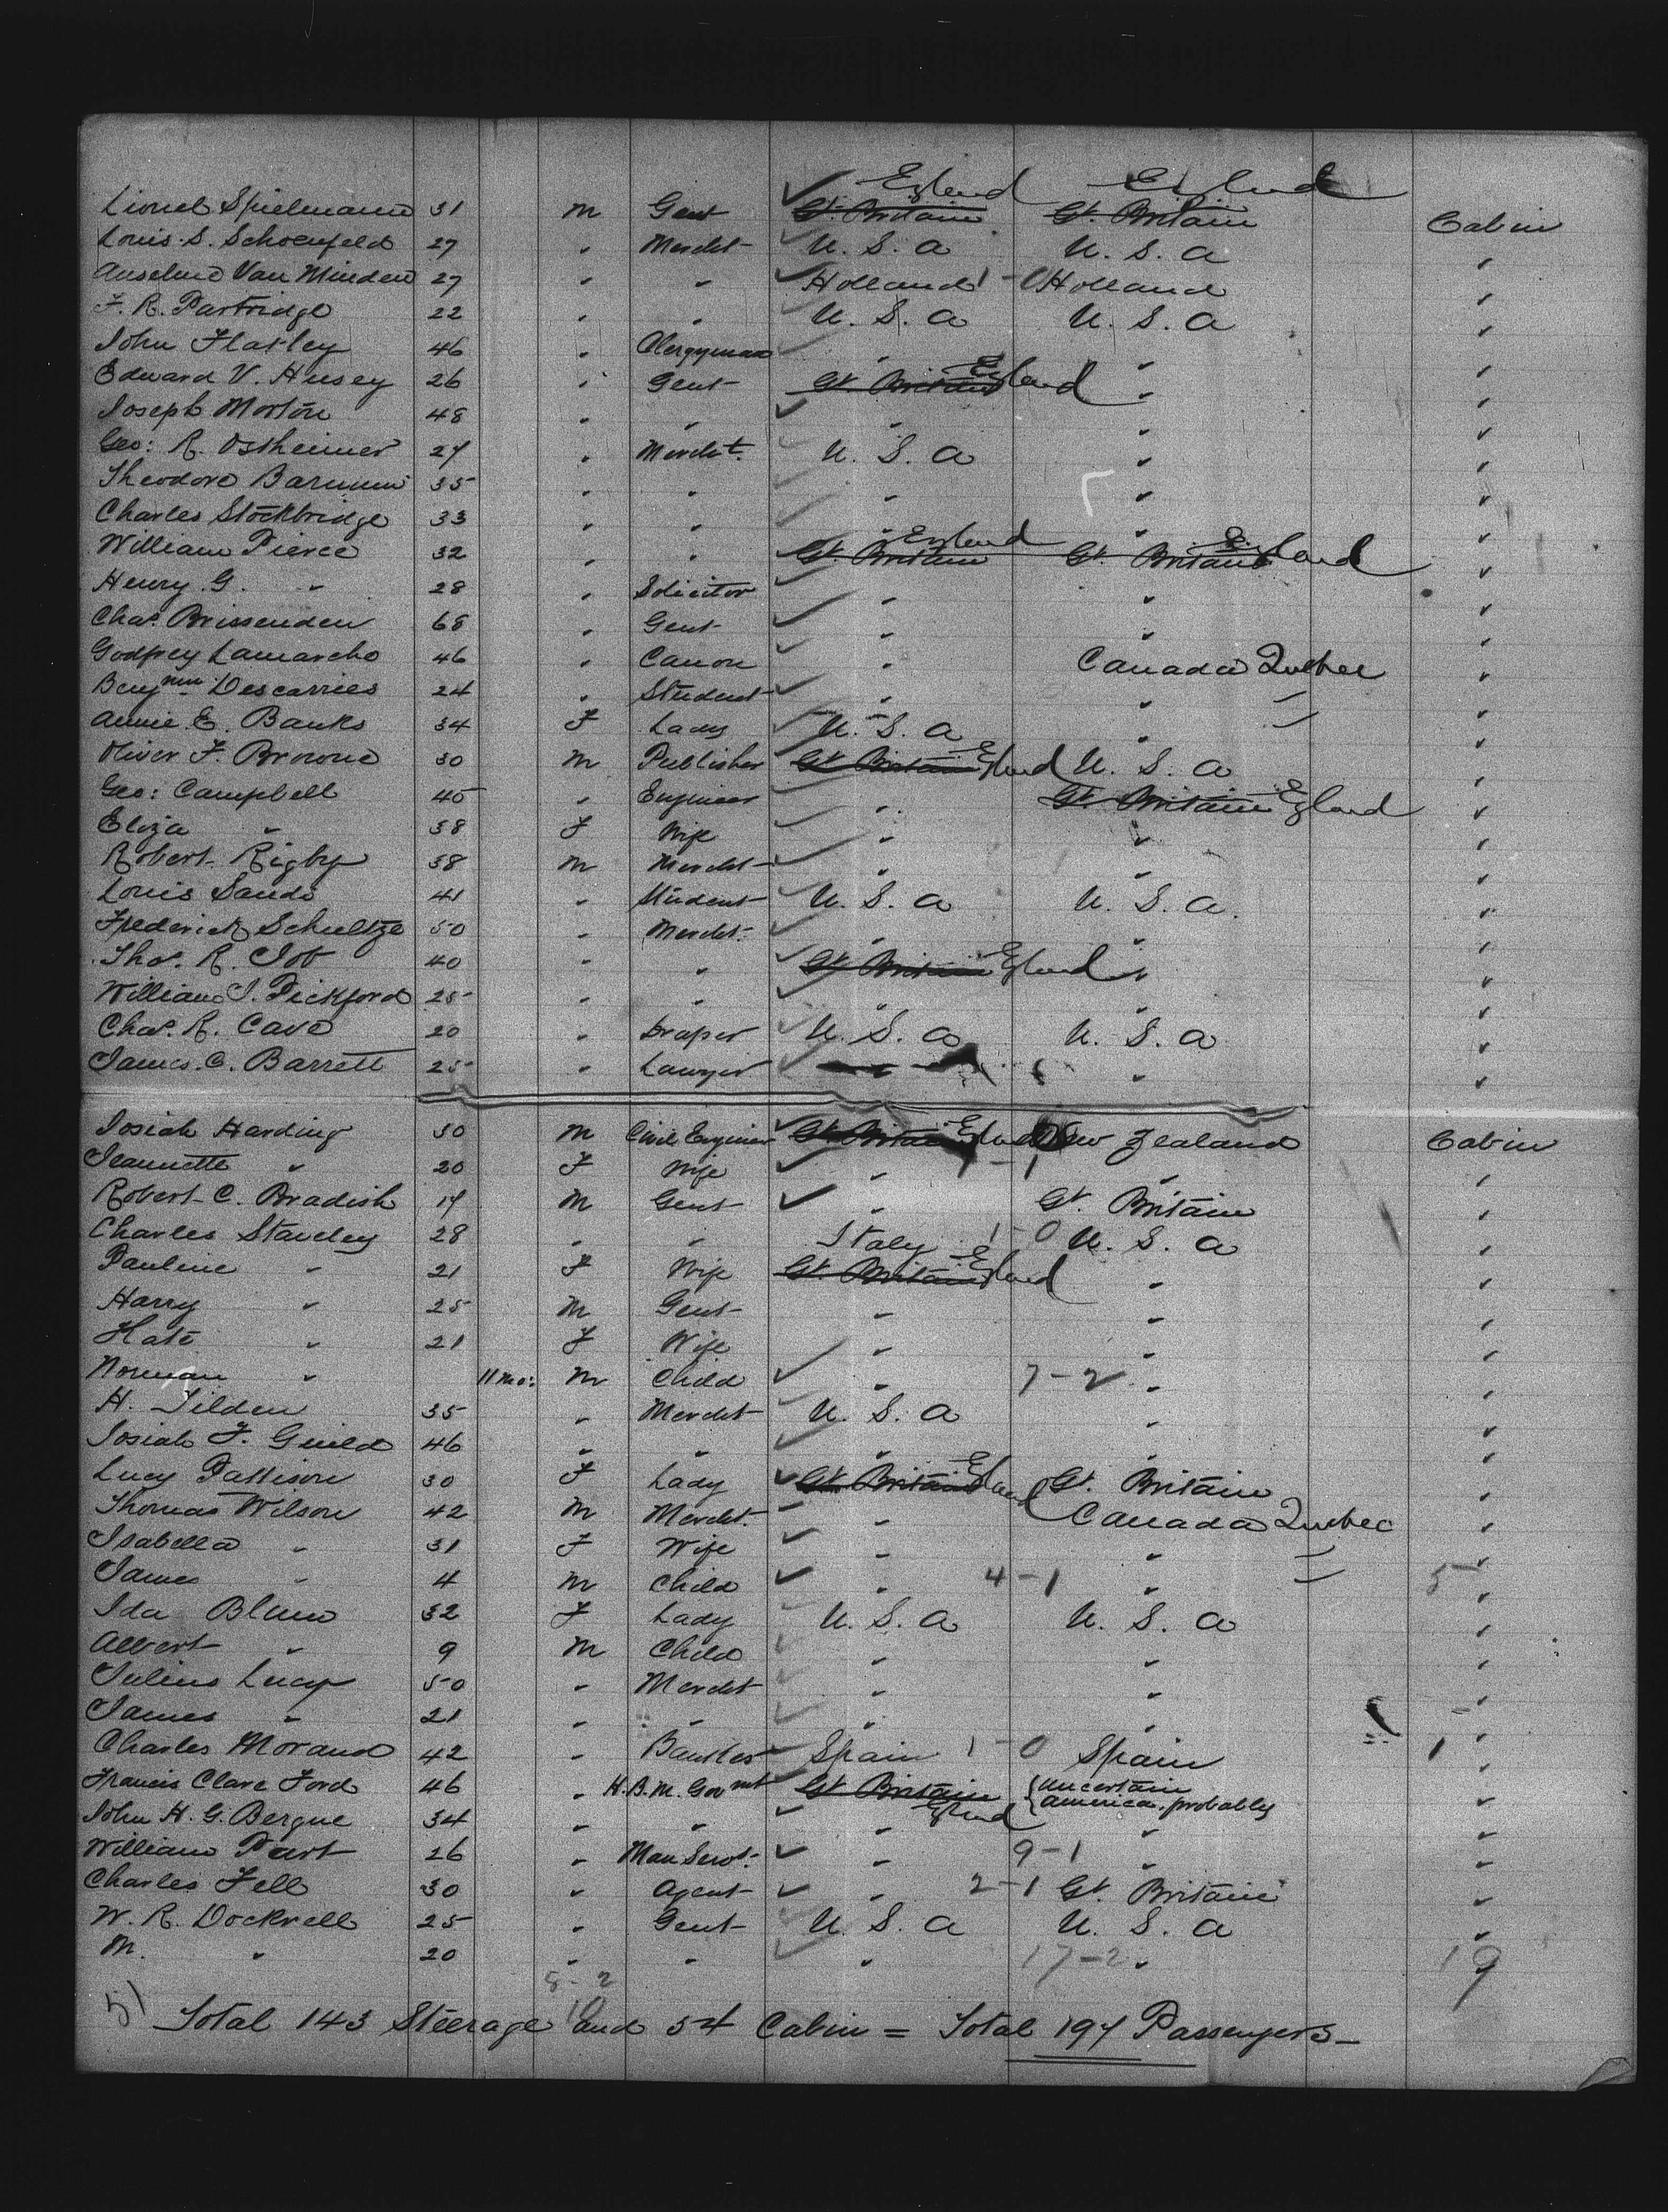 England England
Lionel Spielmann 31 m Gent Gt. Britain Gt. Britain Cabin
Louis S. Schoenfeld 27 " Mercht U. S. a U. S. a "
Anselme Van Minden 27 " " Holland 1-0 Holland "
F. R. Partridge 22 " " U. S. a U. S. a "
John Flatley 46 " Clergyman " " "
Edward V. Husey 26 " Gent Gt. Britain England " "
Joseph Morton 48 " " " " "
Geo: R. Ostheimer 27 " Mercht. U. S. a " "
Theodore Barnum 35 " " " " "
Charles Stockbridge 33 " " " " "
William Pierce 32 " " Gt. Britain England Gt. Britain England "
Henry G. " 28 " Solicitor " " "
Chas. Brissenden 68 " Gent " " "
Godfrey Lamarche 46 " Canon " Canada Quebec "
Benjmn Descarries 24 " Student " " " "
Annie E. Banks 34 F Lady U. S. a " "
Oliver F. Browne 30 m Publisher Gt. Britain England U. S. a "
Geo: Campbell 45 " Engineer " Gt. Britain England "
Eliza " 38 F Wife " " "
Robert Rigby 38 m Mercht " " "
Louis Sands 41 " Student U. S. a U. S. a. "
Frederick Schultze 50 " Mercht. " " "
Thos. R. Job 40 " " Gt. Britain England " "
William J. Pickford 25 " " " " "
Chas. R. Cave 20 " Draper U. S. a U. S. a "
James. C. Barrett 25 " Lawyer " " "
Josiah Harding 30 m Civil Engineer Gt. Britain England New Zealand Cabin
Jeannette " 20 F Wife " 1-1 " "
Robert C. Bradish 17 m Gent " Gt. Britain "
Charles Stanley 28 " " Italy 1-0 U. S. a "
Pauline " 21 F Wife Gt. Britain England " "
Harry " 25 m Gent " " "
Kate " 21 F Wife " " "
Norman " 11 mo: m Child " 7-2 " "
H. Tilden 35 " Mercht U. S. a " "
Josiah F. Guild 46 " " " " "
Lucy Pattison 30 F Lady Gt. Britain England Gt. Britain "
Thomas Wilson 42 m Mercht. " Canada Quebec "
Isabella " 31 F Wife " " " "
James " 4 m Child " 4-1 " " 5 "
Ida Blum 32 F Lady U. S. a U. S. a "
Albert " 9 m Child " " "
Julius Lucy 50 " Mercht " " "
James " 21 " " " " "
Charles Morand 42 " Banker Spain 1-0 Spain 1 "
Francis Clare Ford 46 " H.B.M. Govmt Gt. Britain England { Uncertain
{ America. probably "
John H. G. Bergne 34 " " " " "
William Part 26 " Man Servt. " 9-1 " "
Charles Fell 30 " Agent " 2-1 Gt. Britain "
W. R. Dockrell 25 " Gent U. S. a U. S. a "
M. " 20 " " " 17-2 " 19
8-2
51 10
Total 143 Steerage and 54 Cabin = Total 197 Passengers-